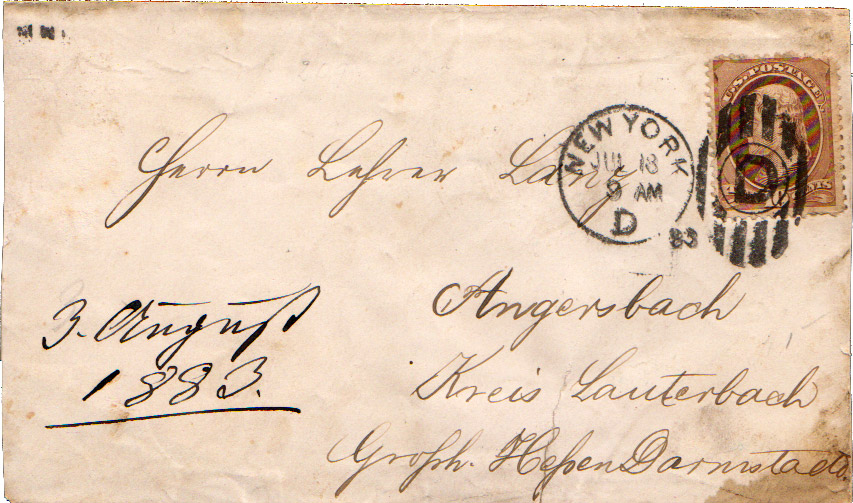 NEW YORK
JUL 18
9 AM
D
83
U.S. POSTAGE
D
Herrn Lehrer Lang
Angersbach
Kreis Lauterbach
Großh. Heßen Darmstadt.
3. August
1883.